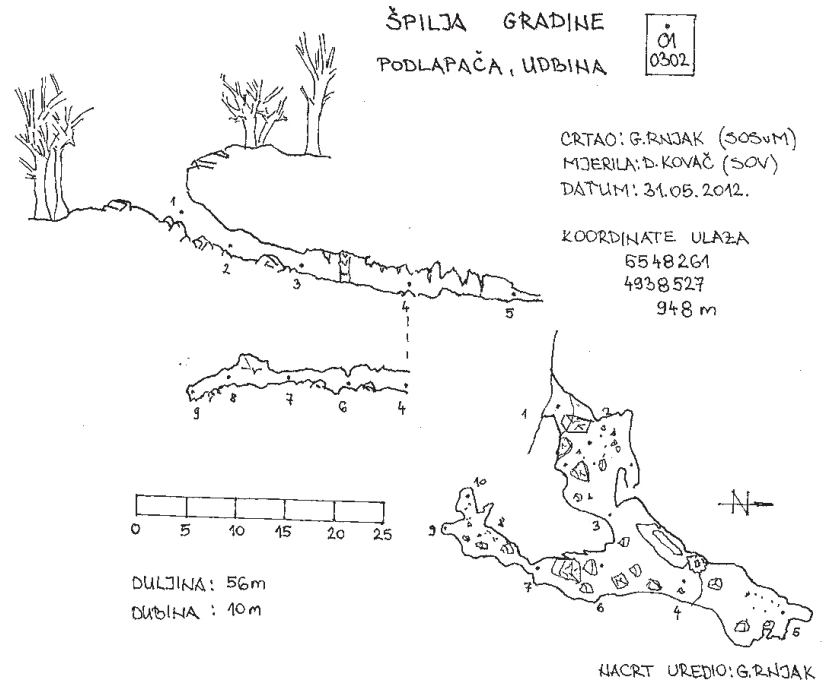 ŠPILJA GRADINE
PODLAPAČA, UDBINA
01
0302
CRTAO: G.RNJAK (SOSvM)
MJERILA: D. KOVAČ (SOV)
DATUM: 31.05.2012.
KOORDINATE ULAZA
5548261
4938527
948 m
1
2
3
4
5
9
8
7
6
4
1
2
3
4
5
6
7
8
9
10
N
0 5 10 15 20 25
DULJINA: 56m
DUBINA : 10m
NACRT UREDIO: G.RNJAK